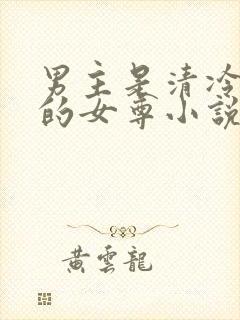 男主是清冷
的女尊小說
黃雲龍